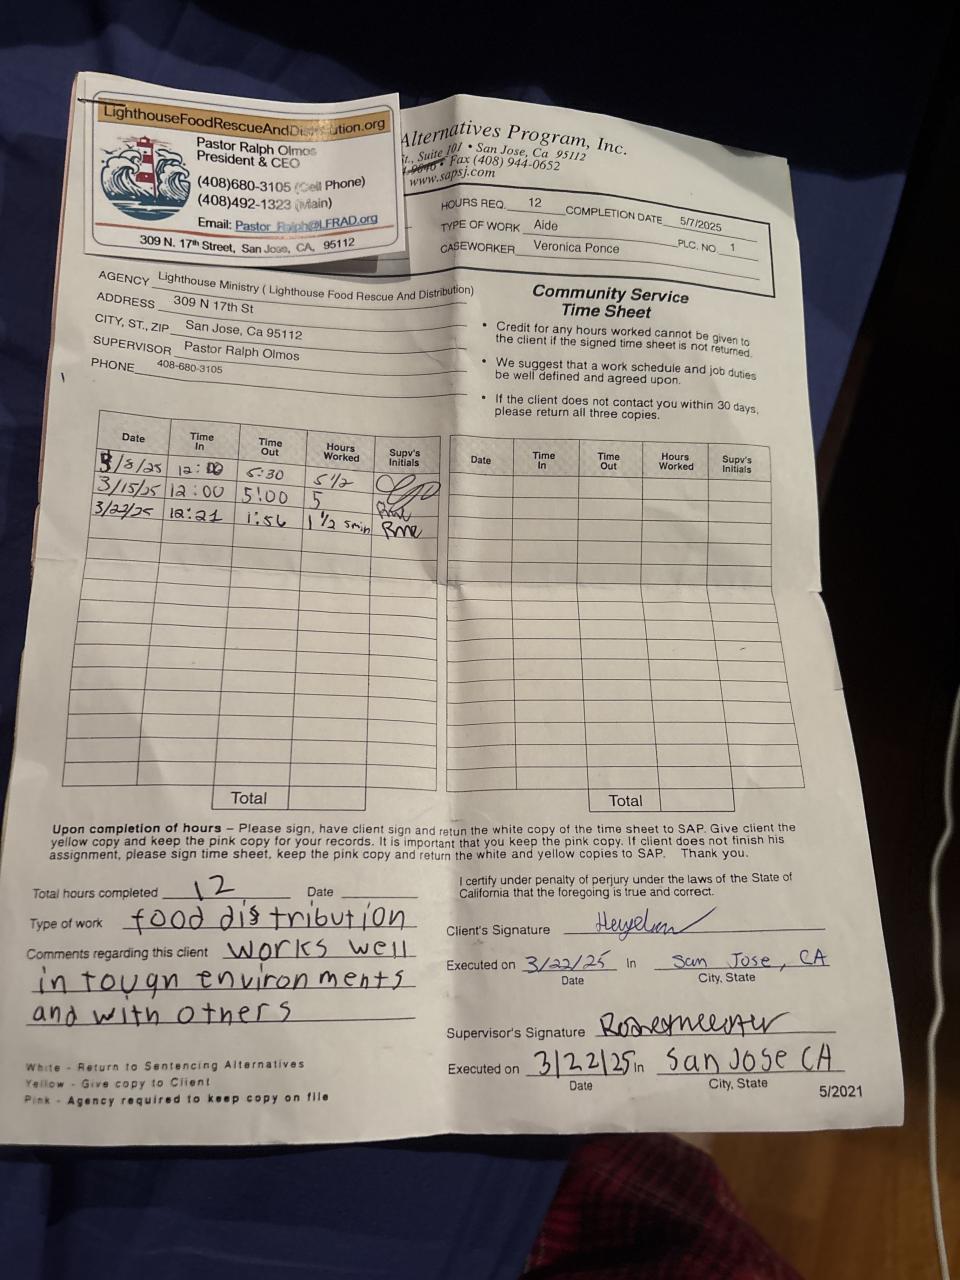 LighthouseFoodRescueAndDistribution.org
Pastor Ralph Olmos
President & CEO
(408)680-3105 (Cell Phone)
(408)492-1323 (Main)
Email: Pastor_Ralph@LFRAD.org
309 N. 17th Street, San Jose, CA, 95112
Alternatives Program, Inc.
St., Suite 101 • San Jose, Ca 95112
• Fax (408) 944-0652
www.sapsj.com
HOURS REQ. 12 COMPLETION DATE 5/7/2025
TYPE OF WORK Aide PLC. NO. 1
CASEWORKER Veronica Ponce
AGENCY Lighthouse Ministry ( Lighthouse Food Rescue And Distribution)
ADDRESS 309 N 17th St
CITY, ST., ZIP San Jose, Ca 95112
SUPERVISOR Pastor Ralph Olmos
PHONE 408-680-3105
Community Service
Time Sheet
• Credit for any hours worked cannot be given to
the client if the signed time sheet is not returned.
• We suggest that a work schedule and job duties
be well defined and agreed upon.
• If the client does not contact you within 30 days,
please return all three copies.
Date Time In Time Out Hours Worked Supv's Initials
3/8/25 12:00 5:30 5 1/2
3/15/25 12:00 5:00 5 Rmr
3/22/25 12:21 1:56 1 1/2 5min Rmr
Date Time In Time Out Hours Worked Supv's Initials
Total
Total
Upon completion of hours – Please sign, have client sign and retun the white copy of the time sheet to SAP. Give client the
yellow copy and keep the pink copy for your records. It is important that you keep the pink copy. If client does not finish his
assignment, please sign time sheet, keep the pink copy and return the white and yellow copies to SAP. Thank you.
Total hours completed 12 Date
Type of work food distribution
Comments regarding this client works well
in tough environments
and with others
White - Return to Sentencing Alternatives
Yellow - Give copy to Client
Pink - Agency required to keep copy on file
I certify under penalty of perjury under the laws of the State of
California that the foregoing is true and correct.
Client's Signature
Executed on 3/22/25 In San Jose, CA
Date City, State
Supervisor's Signature
Executed on 3/22/25 in San Jose CA
Date City, State
5/2021